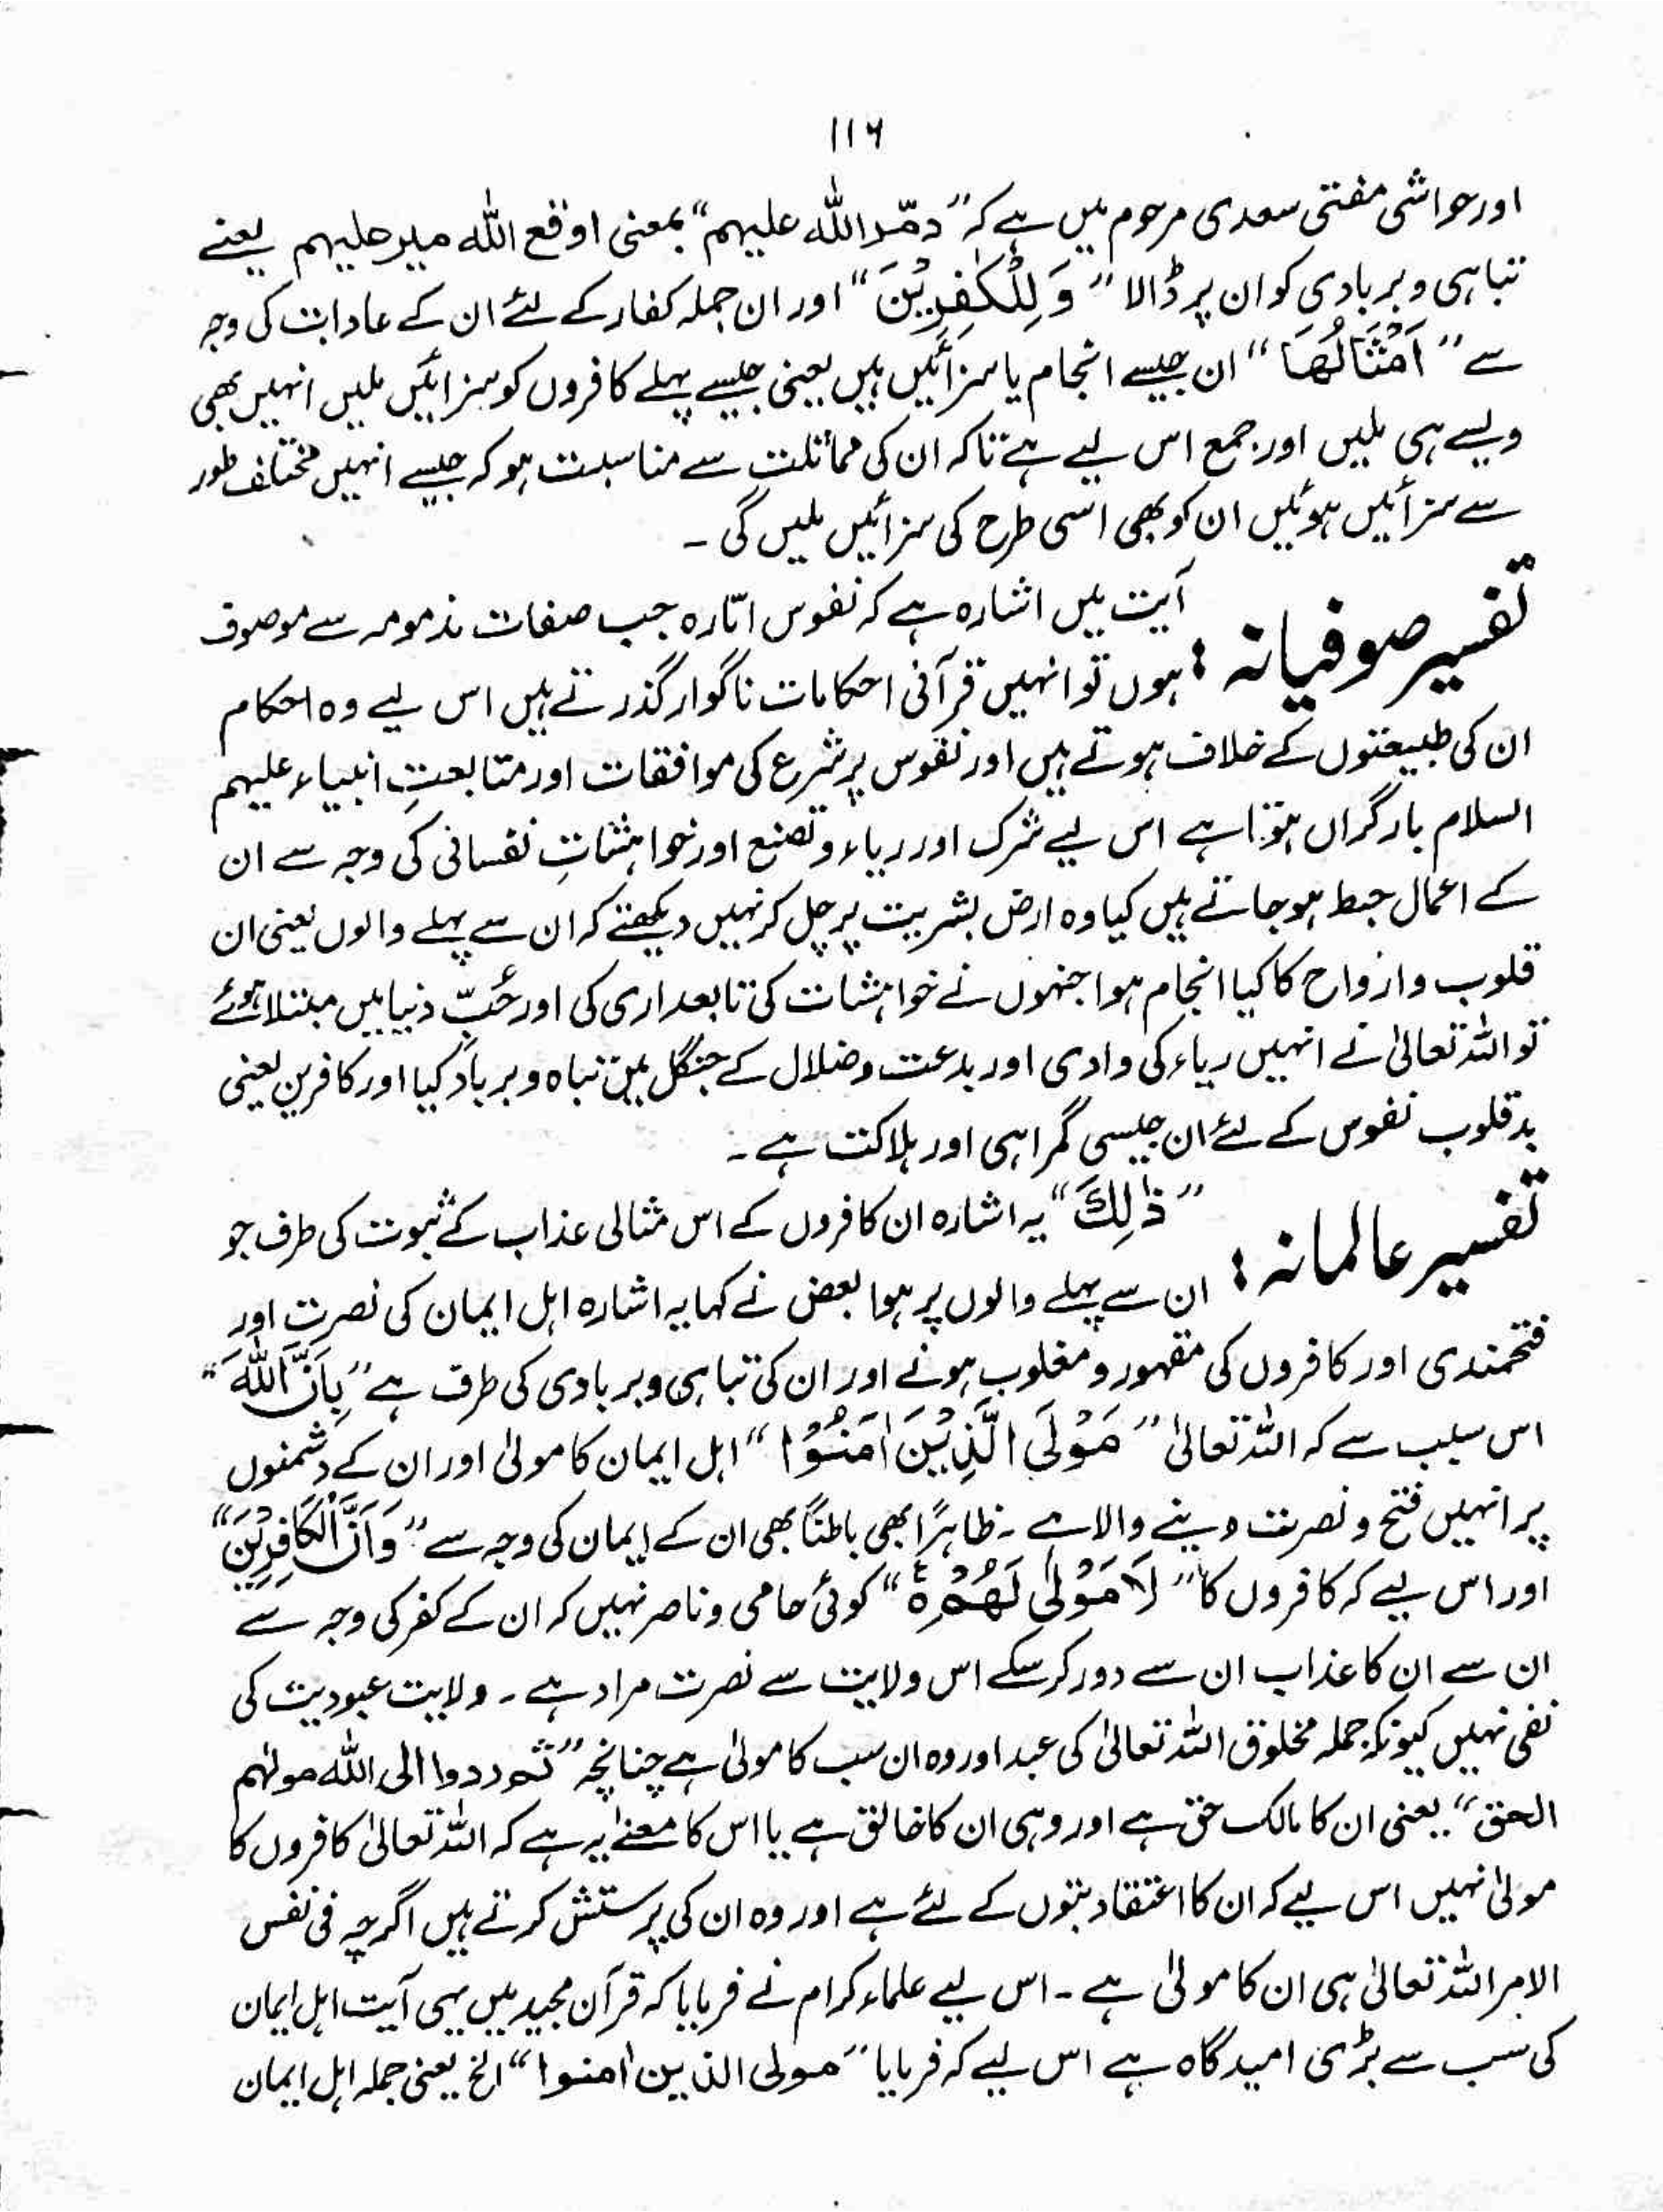 ۱۱۶
اور حواشی مفتی سعدی مرحوم میں ہے کہ ”دمّر اللہ علیہم“ بمعنی اوقع اللہ میر علیہم یعنے
تباہی و بربادی کو ان پر ڈالا ”وَلِلْکٰفِرِیْنَ“ اور ان جملہ کفار کے لئے ان کے عادات کی وجہ
سے ”اَمْثَالُهَا“ ان جیسے انجام یا سزائیں ہیں یعنی جیسے پہلے کافروں کو سزائیں ملیں انہیں بھی
ویسے ہی ملیں اور جمع اس لیے ہے تاکہ ان کی مماثلت سے مناسبت ہو کہ جیسے انہیں مختلف طور
سے سزائیں ہوئیں ان کو بھی اسی طرح کی سزائیں ملیں گی ۔
تفسیر صوفیانہ : آیت میں اشارہ ہے کہ نفوس امّارہ جب صفات مذمومہ سے موصوف
ہوں تو انہیں قرآنی احکامات ناگوار گذرتے ہیں اس لیے وہ احکام
ان کی طبیعتوں کے خلاف ہوتے ہیں اور نفوس پر شرع کی موافقات اور متابعتِ انبیاء علیہم
السلام بارگراں ہوتا ہے اس لیے شرک اور ریاء و تصنع اور خواہشاتِ نفسانی کی وجہ سے ان
کے اعمال حبط ہو جاتے ہیں کیا وہ ارض بشریت پر چل کر نہیں دیکھتے کہ ان سے پہلے والوں یعنی ان
قلوب و ارواح کا کیا انجام ہوا جنہوں نے خواہشات کی تابعداری کی اور حُبّ دنیا میں مبتلا ہوئے
تو اللہ تعالیٰ نے انہیں ریاء کی وادی اور بدعت و ضلال کے جنگل میں تباہ و برباد کیا اور کافرین یعنی
بدقلوب نفوس کے لئے ان جیسی گمراہی اور ہلاکت ہے ۔
تفسیر عالمانہ : ”ذٰلِكَ“ یہ اشارہ ان کافروں کے اس مثالی عذاب کے ثبوت کی طرف جو
ان سے پہلے والوں پر ہوا بعض نے کہا یہ اشارہ اہل ایمان کی نصرت اور
فتحمندی اور کافروں کی مقہور و مغلوب ہونے اور ان کی تباہی و بربادی کی طرف ہے ”بِاَنَّ اللّٰهَ“
اس سبب سے کہ اللہ تعالیٰ ”مَوْلَی الَّذِیْنَ اٰمَنُوْا“ اہل ایمان کا مولیٰ اور ان کے دشمنوں
پر انہیں فتح و نصرت دینے والا ہے ۔ ظاہرًا بھی باطنًا بھی ان کے ایمان کی وجہ سے ”وَاَنَّ الْکَافِرِیْنَ“
اور اس لیے کہ کافروں کا ”لَا مَوْلٰی لَهُمْ“ کوئی حامی و ناصر نہیں کہ ان کے کفر کی وجہ سے
ان سے ان کا عذاب ان سے دور کر سکے اس ولایت سے نصرت مراد ہے ۔ ولایت عبودیت کی
نفی نہیں کیونکہ جملہ مخلوق اللہ تعالیٰ کی عبد اور وہ ان سب کا مولیٰ ہے چنانچہ ”ثم ردوا الی اللہ مولٰہم
الحق“ یعنی ان کا مالک حق ہے اور وہی ان کا خالق ہے یا اس کا معنےٰ یہ ہے کہ اللہ تعالیٰ کافروں کا
مولیٰ نہیں اس لیے کہ ان کا اعتقاد بتوں کے لئے ہے اور وہ ان کی پرستش کرتے ہیں اگرچہ فی نفس
الامر اللہ تعالیٰ ہی ان کا مولیٰ ہے ۔ اس لیے علماء کرام نے فرمایا کہ قرآن مجید میں یہی آیت اہل ایمان
کی سب سے بڑی امیدگاہ ہے اس لیے کہ فرمایا ”مولی الذین اٰمنوا“ الخ یعنی جملہ اہل ایمان